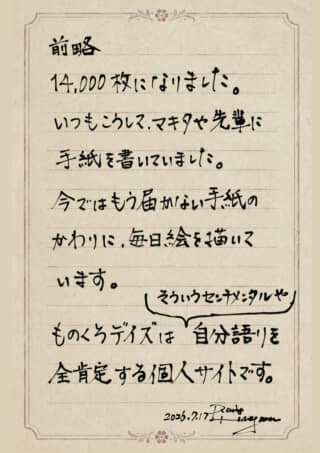 前略
14,000枚になりました。
いつもこうして、マキタや先輩に
手紙を書いていました。
今ではもう届かない手紙の
かわりに、毎日絵を描いて
います。
そういうセンチメンタルや
ものくろデイズは 自分語りを
全肯定する個人サイトです。